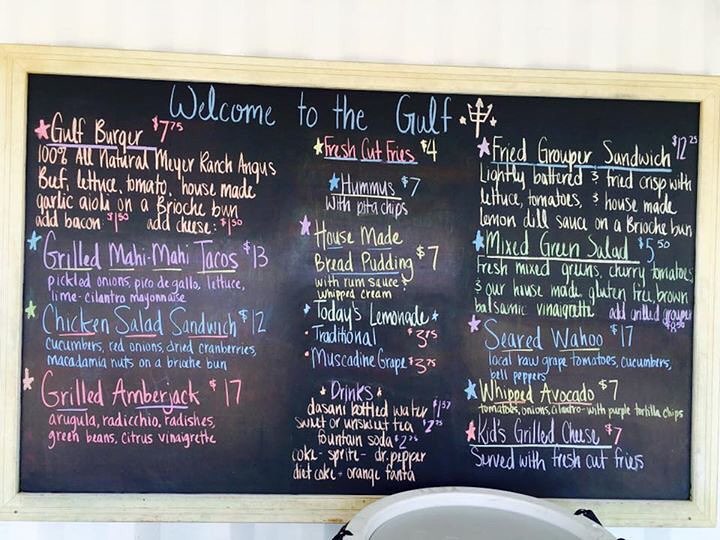 Welcome to the Gulf
Gulf Burger $7.75
100% All Natural Meyer Ranch Angus
Beef, lettuce, tomato, house made
garlic aioli on a Brioche bun
add bacon: $1.50 add cheese: $1.50
Grilled Mahi-Mahi Tacos $13
pickled onions, pico de gallo, lettuce,
lime-cilantro mayonnaise
Chicken Salad Sandwich $12
cucumbers, red onions, dried cranberries,
macadamia nuts on a brioche bun
Grilled Amberjack $17
arugula, radicchio, radishes,
green beans, citrus vinaigrette
Fresh Cut Fries $4
Hummus $7
with pita chips
House Made
Bread Pudding $7
with rum sauce &
whipped cream
Today's Lemonade
Traditional $3.75
Muscadine Grape $3.75
Drinks
dasani bottled water
sweet or unsweet tea
fountain soda
coke - sprite - dr. pepper
diet coke - orange fanta
Fried Grouper Sandwich $12.25
Lightly battered & fried crisp with
lettuce, tomatoes, & house made
lemon dill sauce on a Brioche bun
Mixed Green Salad $5.50
Fresh mixed greens, cherry tomatoes,
& our house made, gluten free, brown
balsamic vinaigrette add grilled grouper
$8.50
Seared Wahoo $17
local raw grape tomatoes, cucumbers,
bell peppers
Whipped Avocado $7
tomatoes, onions, cilantro - with purple tortilla chips
Kid's Grilled Cheese $7
Served with fresh cut fries